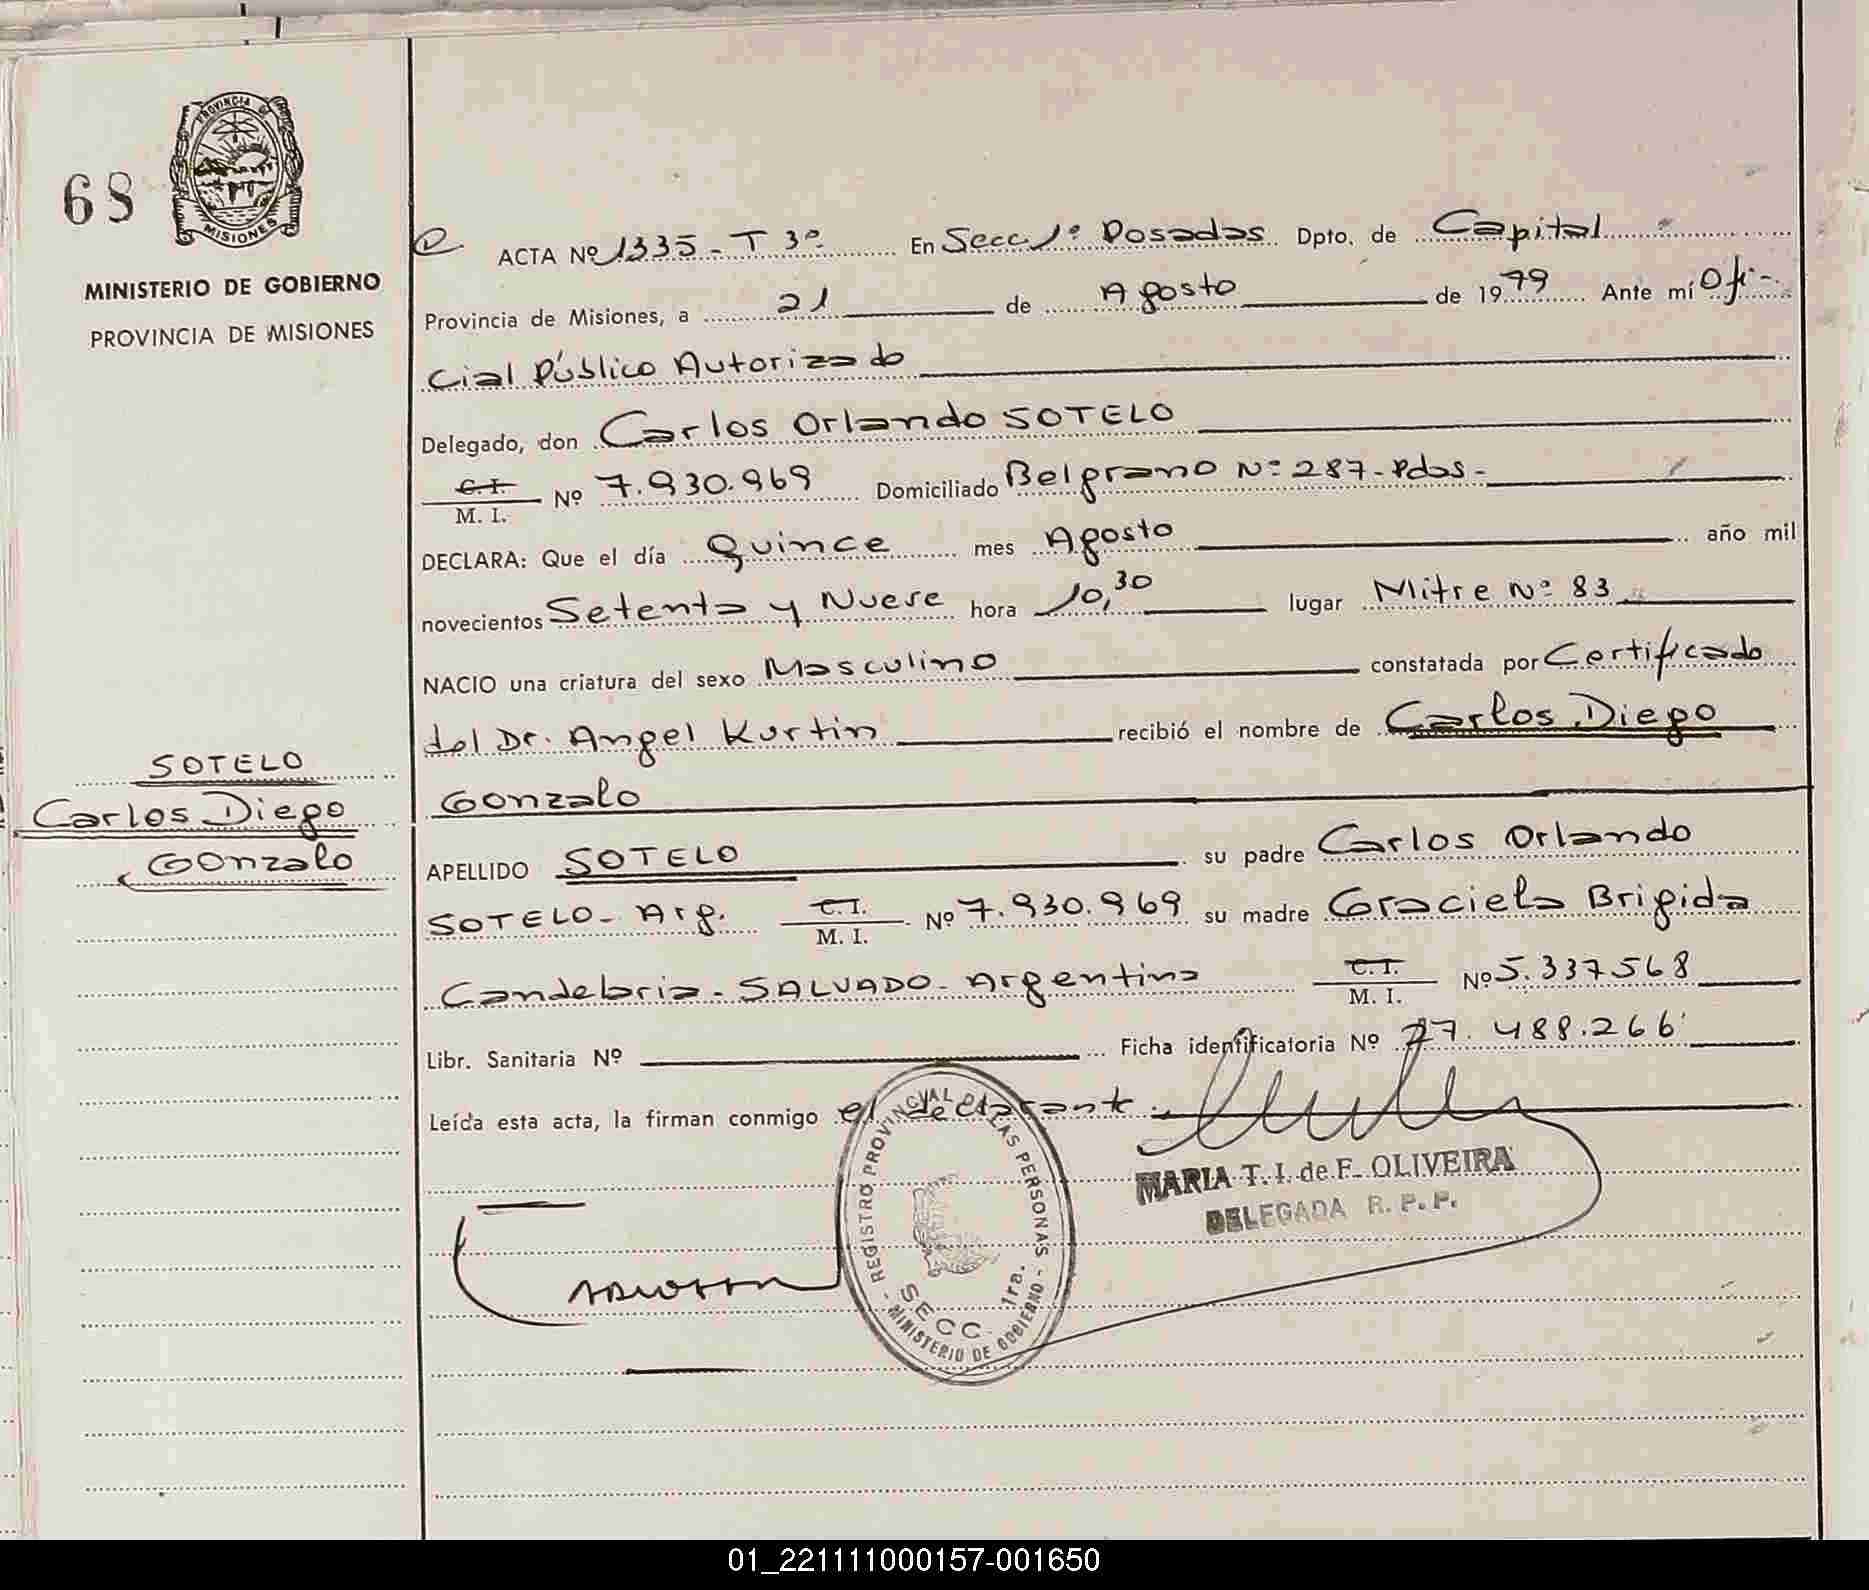 PROVINCIA DE
MISIONES
68
MINISTERIO DE GOBIERNO
PROVINCIA DE MISIONES
ACTA Nº 1335 - T 3º. En Secc 1º Posadas Dpto. de Capital
Provincia de Misiones, a 21 de Agosto de 1979 Ante mí Ofi-
cial Público Autorizado
Delegado, don Carlos Orlando SOTELO
C. I.
M. I. Nº 7.930.969 Domiciliado Belgrano Nº 287-Pdas-
DECLARA: Que el día Quince mes Agosto año mil
novecientos Setenta y Nueve hora 10,30 lugar Mitre Nº 83
NACIO una criatura del sexo Masculino constatada por Certificado
del Dr. Angel Kurtin recibió el nombre de Carlos Diego
Gonzalo
SOTELO
Carlos Diego
Gonzalo
APELLIDO SOTELO su padre Carlos Orlando
SOTELO - Arg. C. I.
M. I. Nº 7.930.969 su madre Graciela Brigida
Candelaria - SALVADO - Argentina C. I.
M. I. Nº 5.337568
Libr. Sanitaria Nº Ficha identificatoria Nº 27.488.266
Leída esta acta, la firman conmigo el declarante
MARIA T. I. de F. OLIVEIRA
DELEGADA R. P. P.
REGISTRO PROVINCIAL DE LAS PERSONAS - MINISTERIO DE GOBIERNO -
SECC. 1ra.
01_221111000157-001650